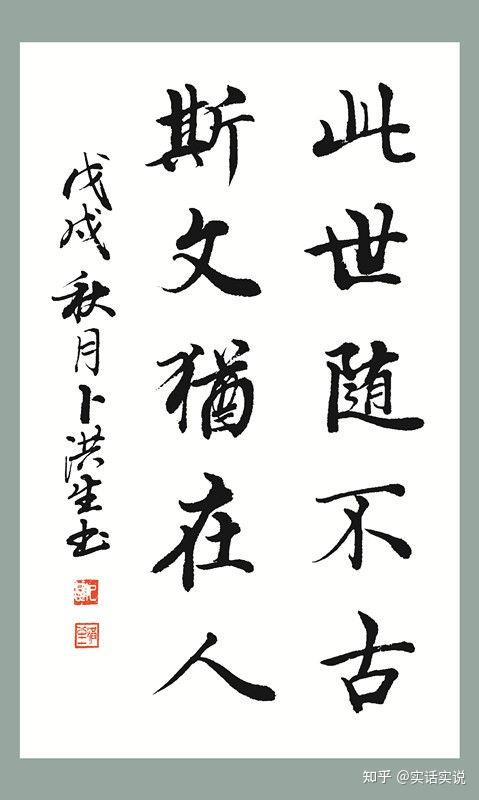 此世随不古
斯文猶在人
戊戌秋月卜洪生书
知乎 @实话实说